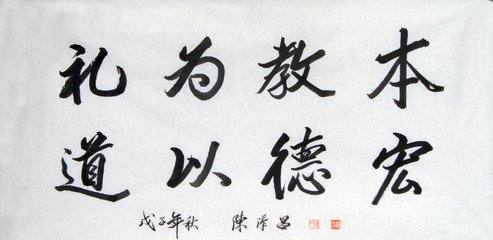 礼为教本
道以德宏
戊子年秋 陳